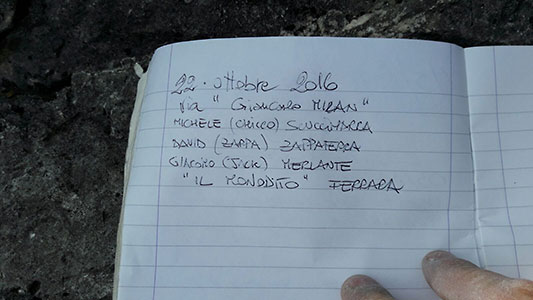 22. ottobre 2016
via "Giancarlo MILAN"
MICHELE (CHICCO) SCUCCIMARRA
DAVID (ZAPPA) ZAPPATERRA
GIACOMO (JACK) MERLANTE
"IL MONODITO" FERRARA